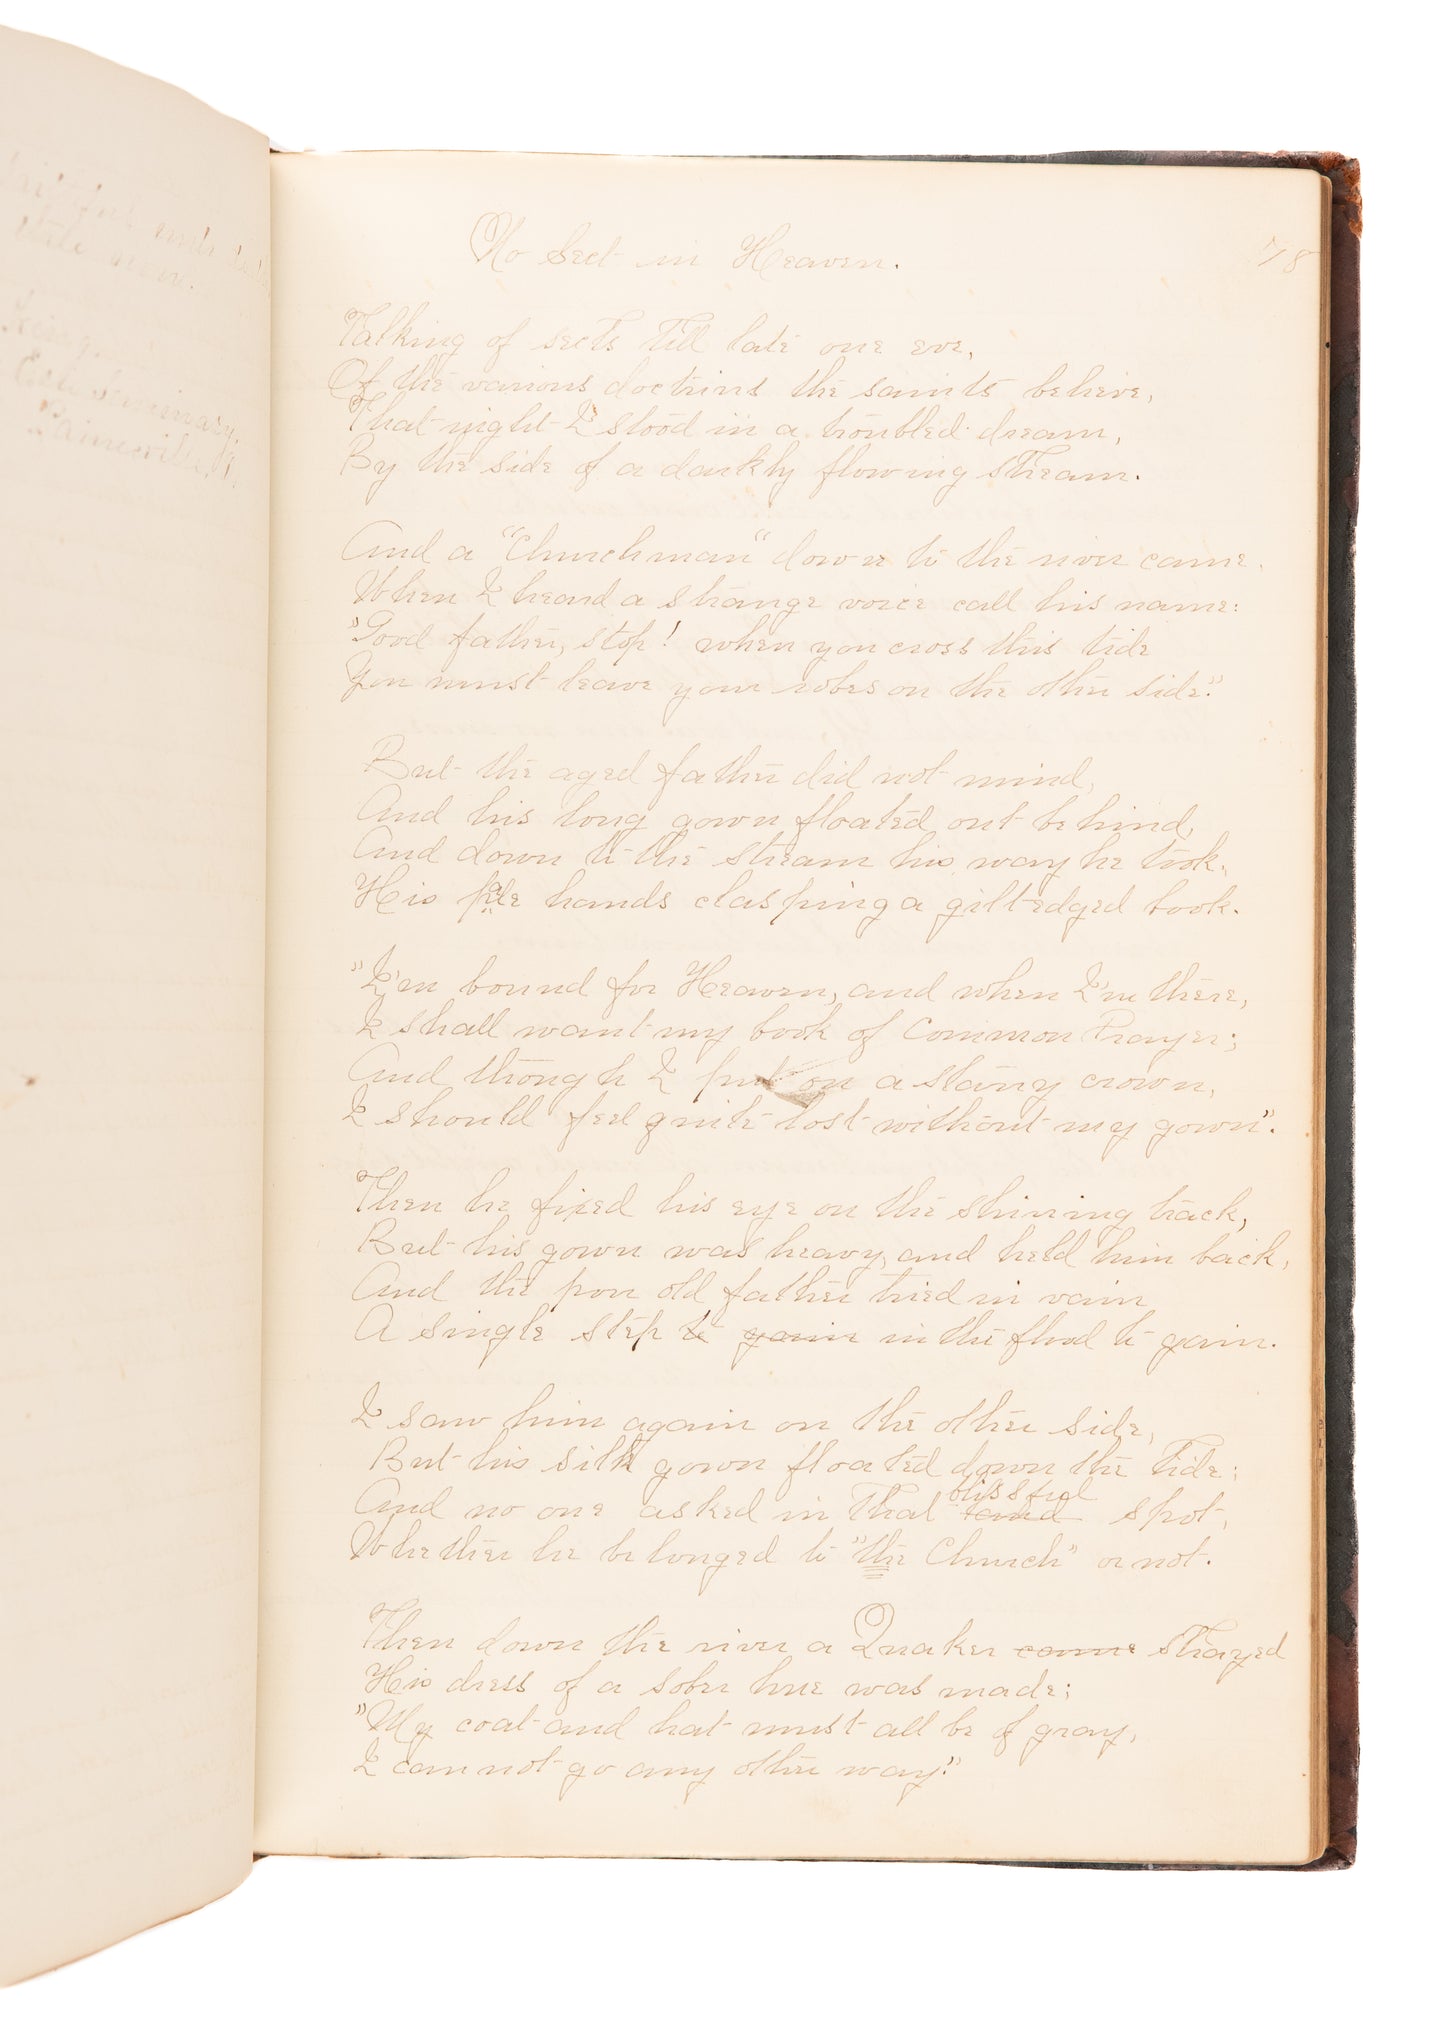 No Sect in Heaven.
78
Talking of sects till late one eve,
Of the various doctrins the saints believe,
That night I stood in a troubled dream,
By the side of a darkly flowing stream.
And a "Churchman" down to the river came,
When I heard a strange voice call his name:
"Good father, stop! when you cross this tide
You must leave your robes on the other side."
But the aged father did not mind,
And his long gown floated out behind,
And down to the stream his way he took,
His pale hands clasping a gilt-edged book.
"I'm bound for Heaven, and when I'm there,
I shall want my book of Common Prayer;
And though I put on a starry crown,
I should feel quite lost without my gown".
Then he fixed his eye on the shining track,
But his gown was heavy, and held him back,
And the poor old father tried in vain
A single step to gain in the flood to gain.
I saw him again on the other side,
But his silk gown floated down the tide;
blissful
And no one asked in that land spot,
Whether he belonged to "the Church" or not.
Then down the river a Quaker came strayed
His dress of a sober hue was made;
"My coat and hat must all be of gray,
I can not go any other way."
little
Seminary,
Painesville, O.